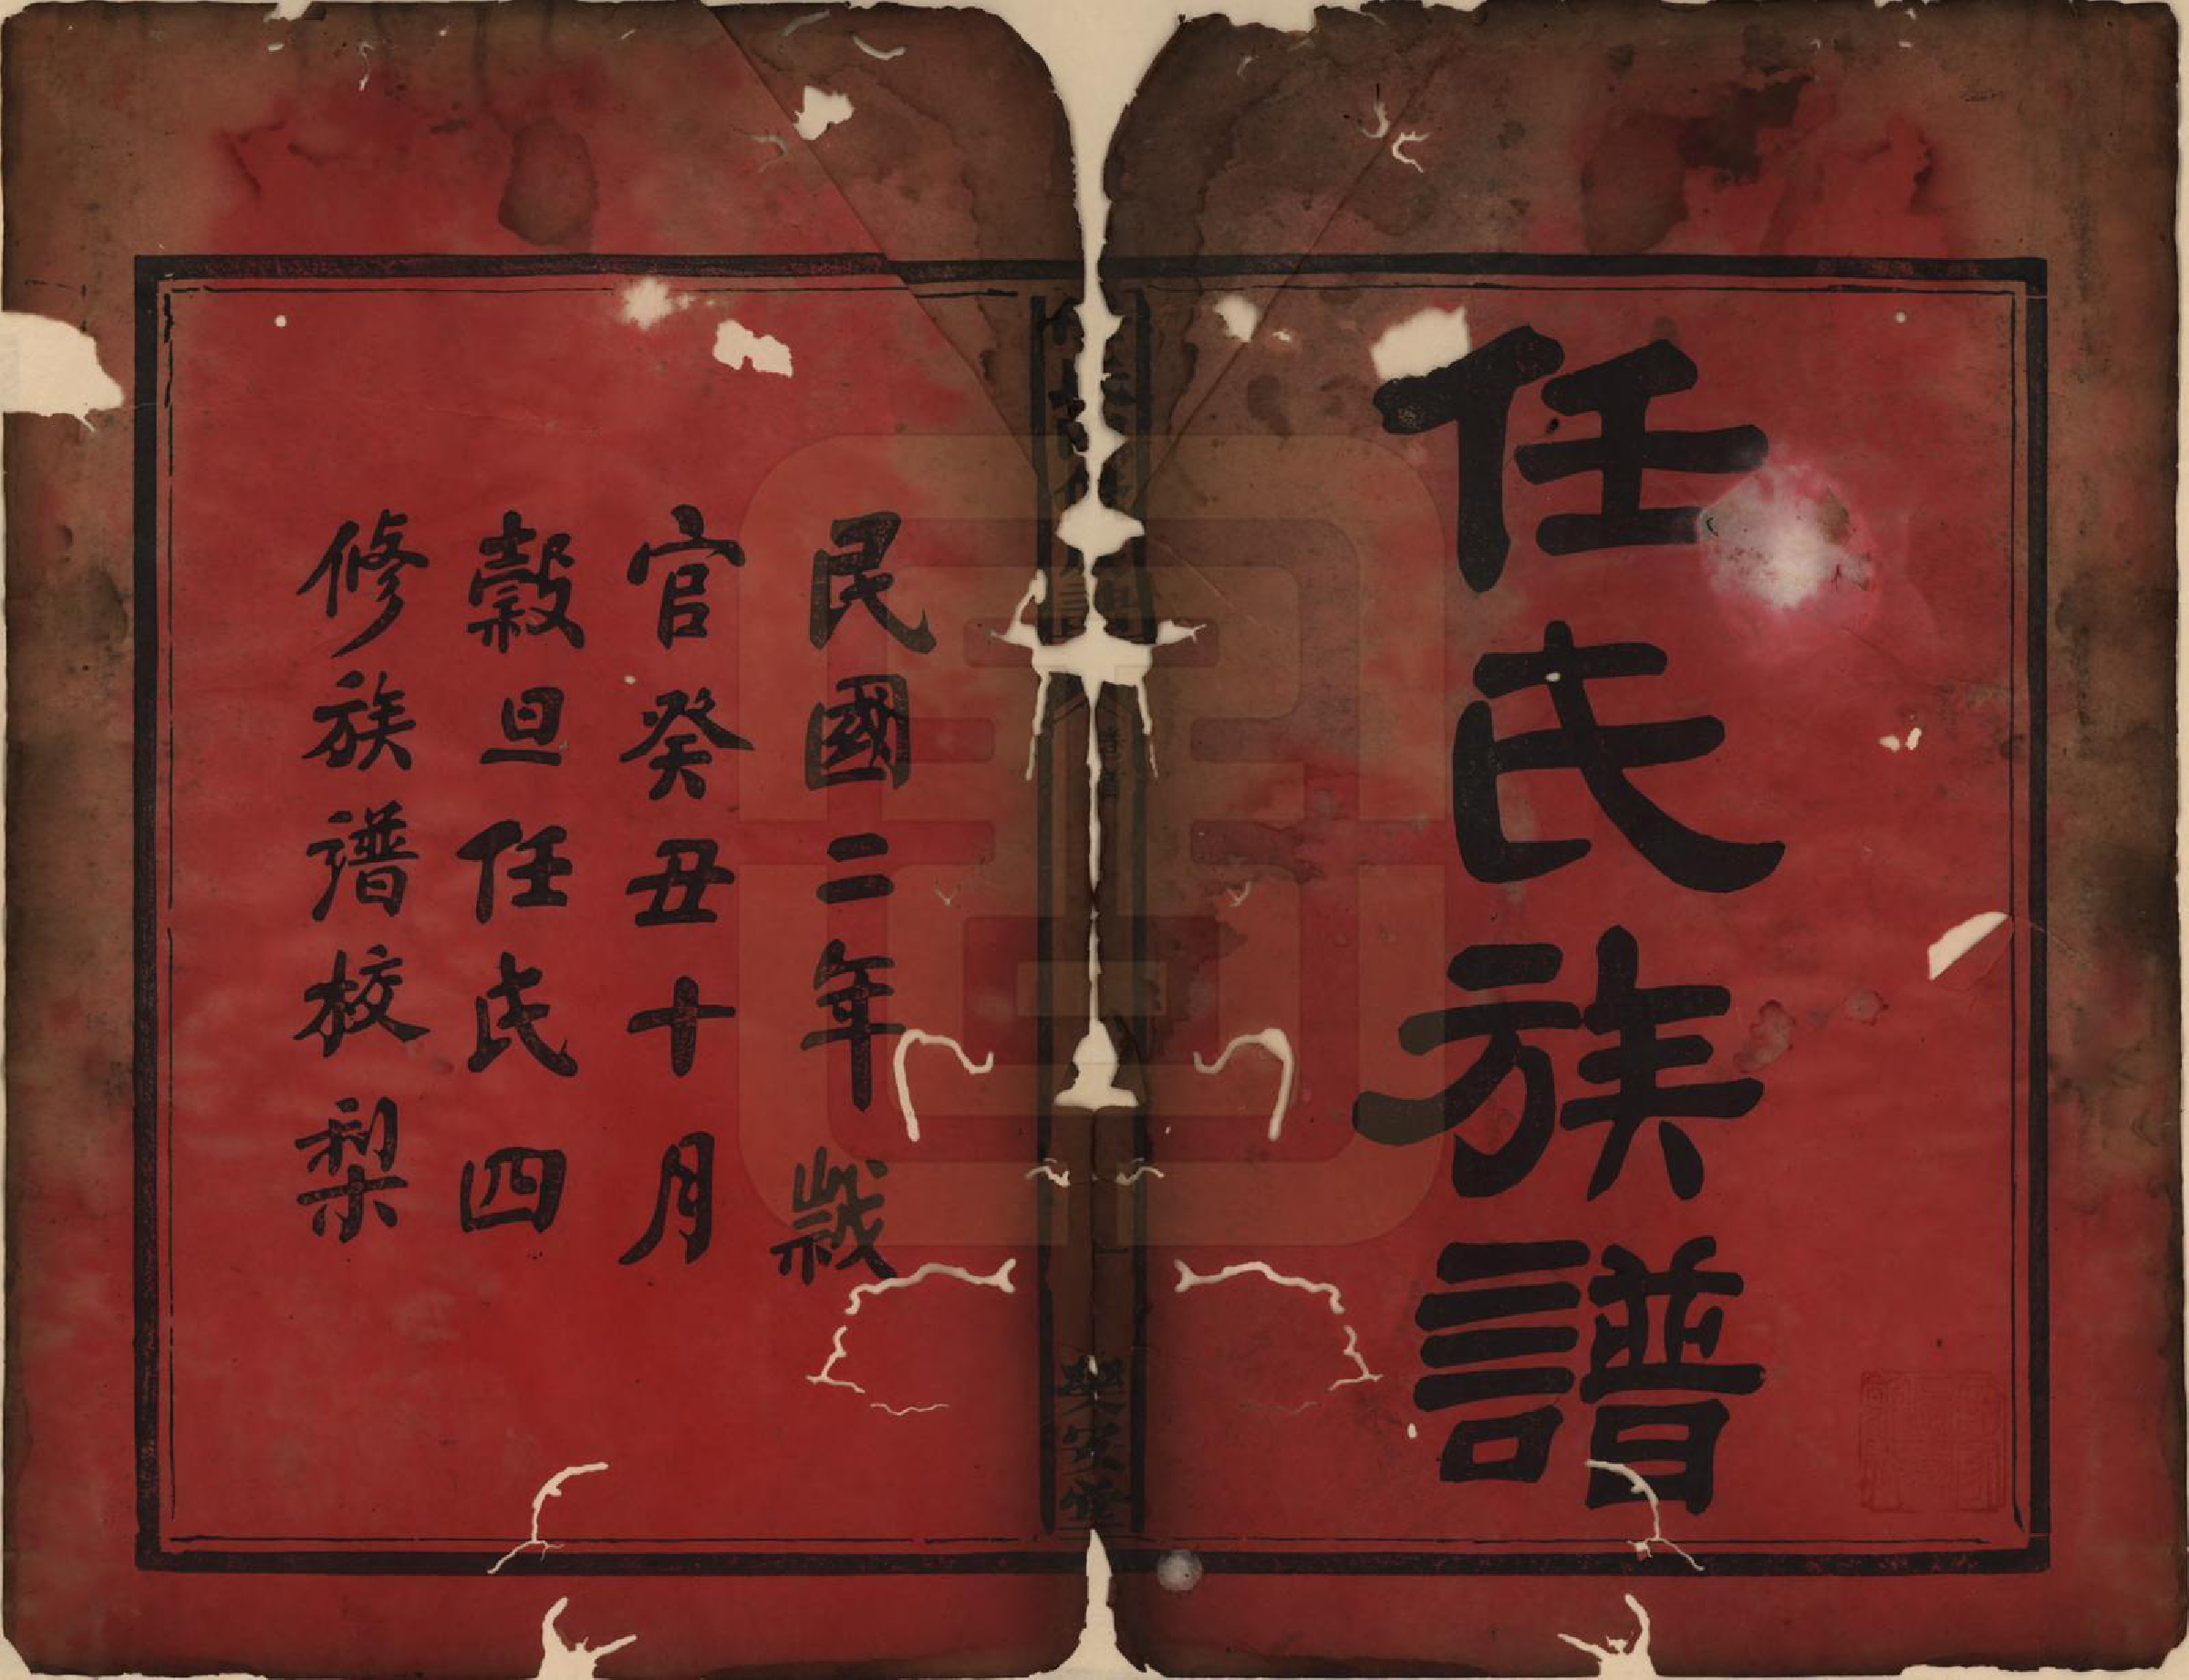 任氏族譜
樂安堂
民國二年歲
官癸丑十月
穀旦任氏四
修族譜校梨